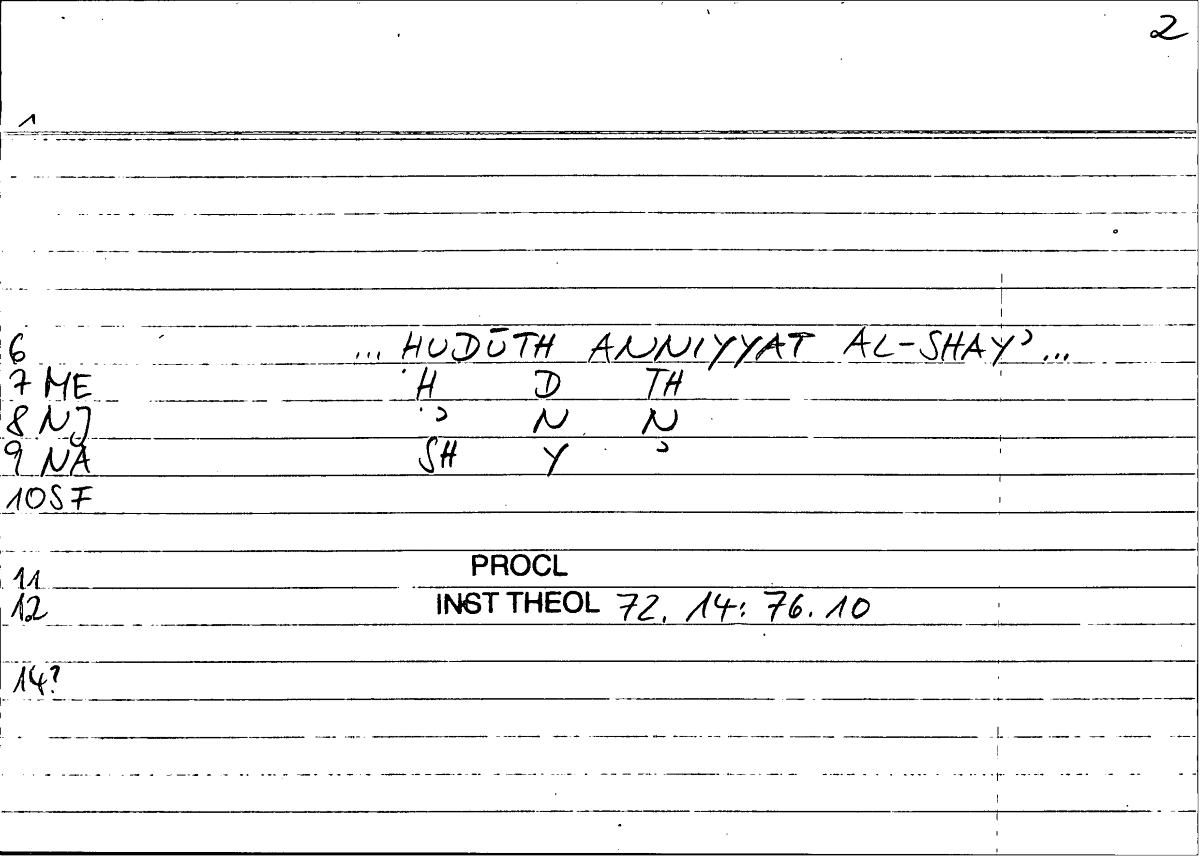 2
1
6 ... ḤUDŪTH ANNIYYAT AL-SHAYʾ ...
7 ME Ḥ D TH
8 NJ ʾ N N
9 NA SH Y ʾ
10 SF
11 PROCL
12 INST THEOL 72. 14: 76. 10
14?